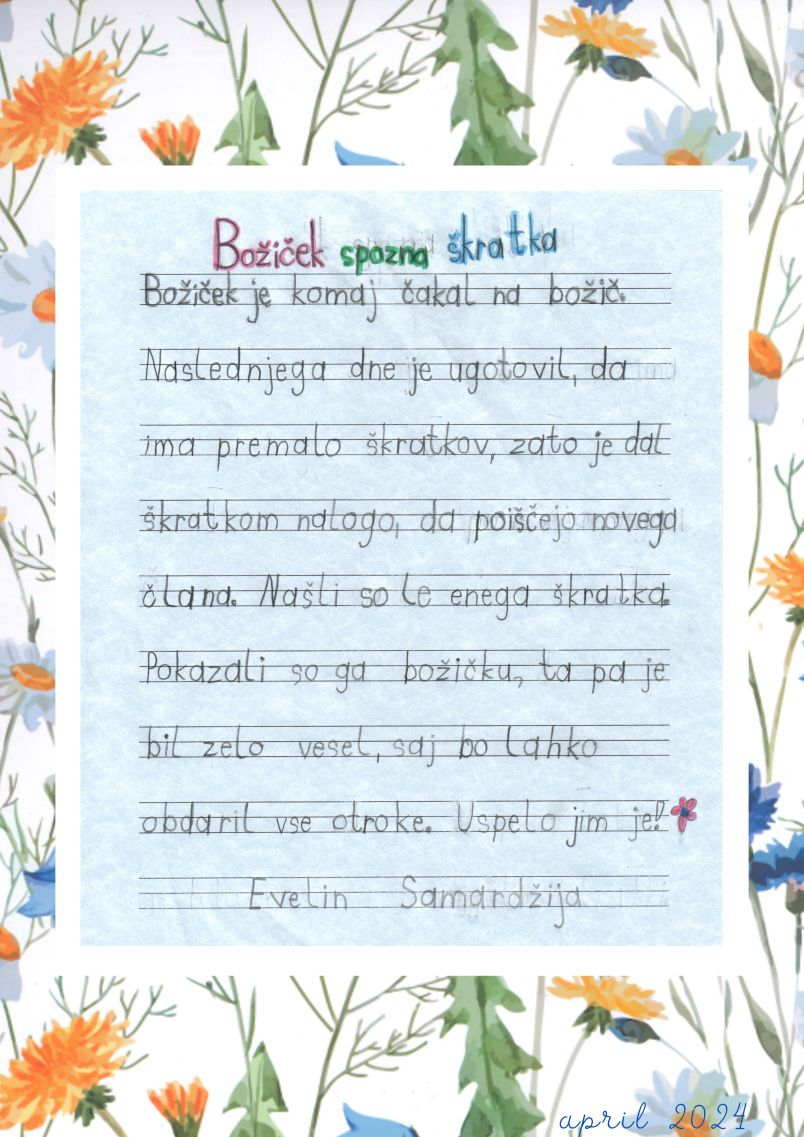 Božiček spozna škratka
Božiček je komaj čakal na božič.
Naslednjega dne je ugotovil, da
ima premalo škratkov, zato je dal
škratkom nalogo, da poiščejo novega
člana. Našli so le enega škratka.
Pokazali so ga božičku, ta pa je
bil zelo vesel, saj bo lahko
obdaril vse otroke. Uspelo jim je!
Evelin Samardžija
april 2024